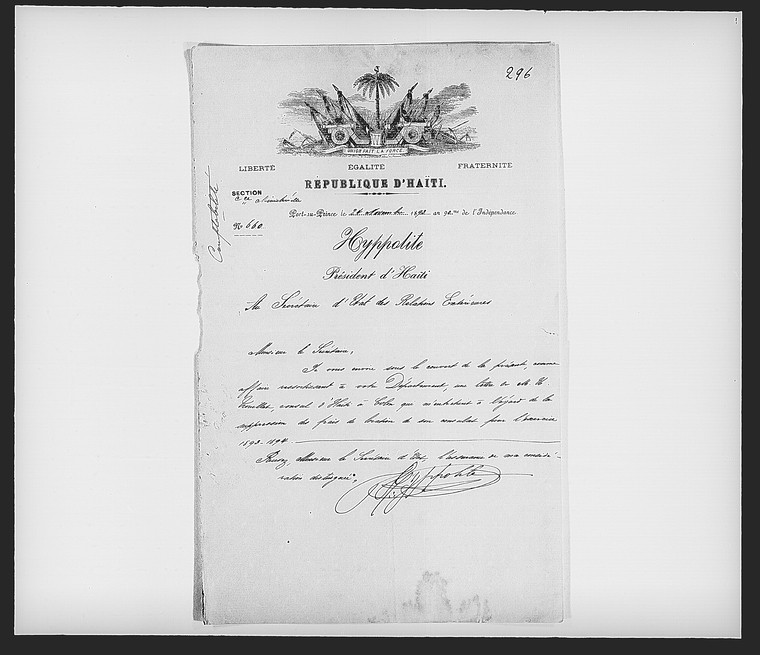 296
UNION FAIT LA FORCE
LIBERTÉ ÉGALITÉ FRATERNITÉ
RÉPUBLIQUE D'HAÏTI.
SECTION
Comptabilité
Port-au-Prince le 24 189 an 90.me de l'Indépendance.
No 660
Hyppolite
Président d'Haïti
Au Secrétaire d'Etat des Relations Extérieures
Monsieur le Secrétaire,
Je vous envoie sous le couvert de la présente, comme
affaire ressortissant à votre Département, une lettre de Mr
consul d'Haïti à Colon qui m'entretient à l'égard de la
suppression des frais de location de son consulat pour l'exercice
1893-1894
Recevez, Monsieur le Secrétaire d'Etat, l'assurance de ma considé-
ration distinguée,
Hyppolite